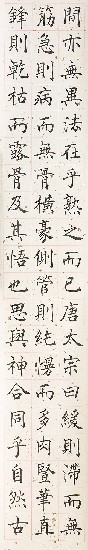 間亦無異法在乎熟之而已唐太宗曰緩則滯而無
筋急則病而無骨橫毫側管則純慢而多肉豎筆直
鋒則乾枯而露骨及其悟也思與神合同乎自然古